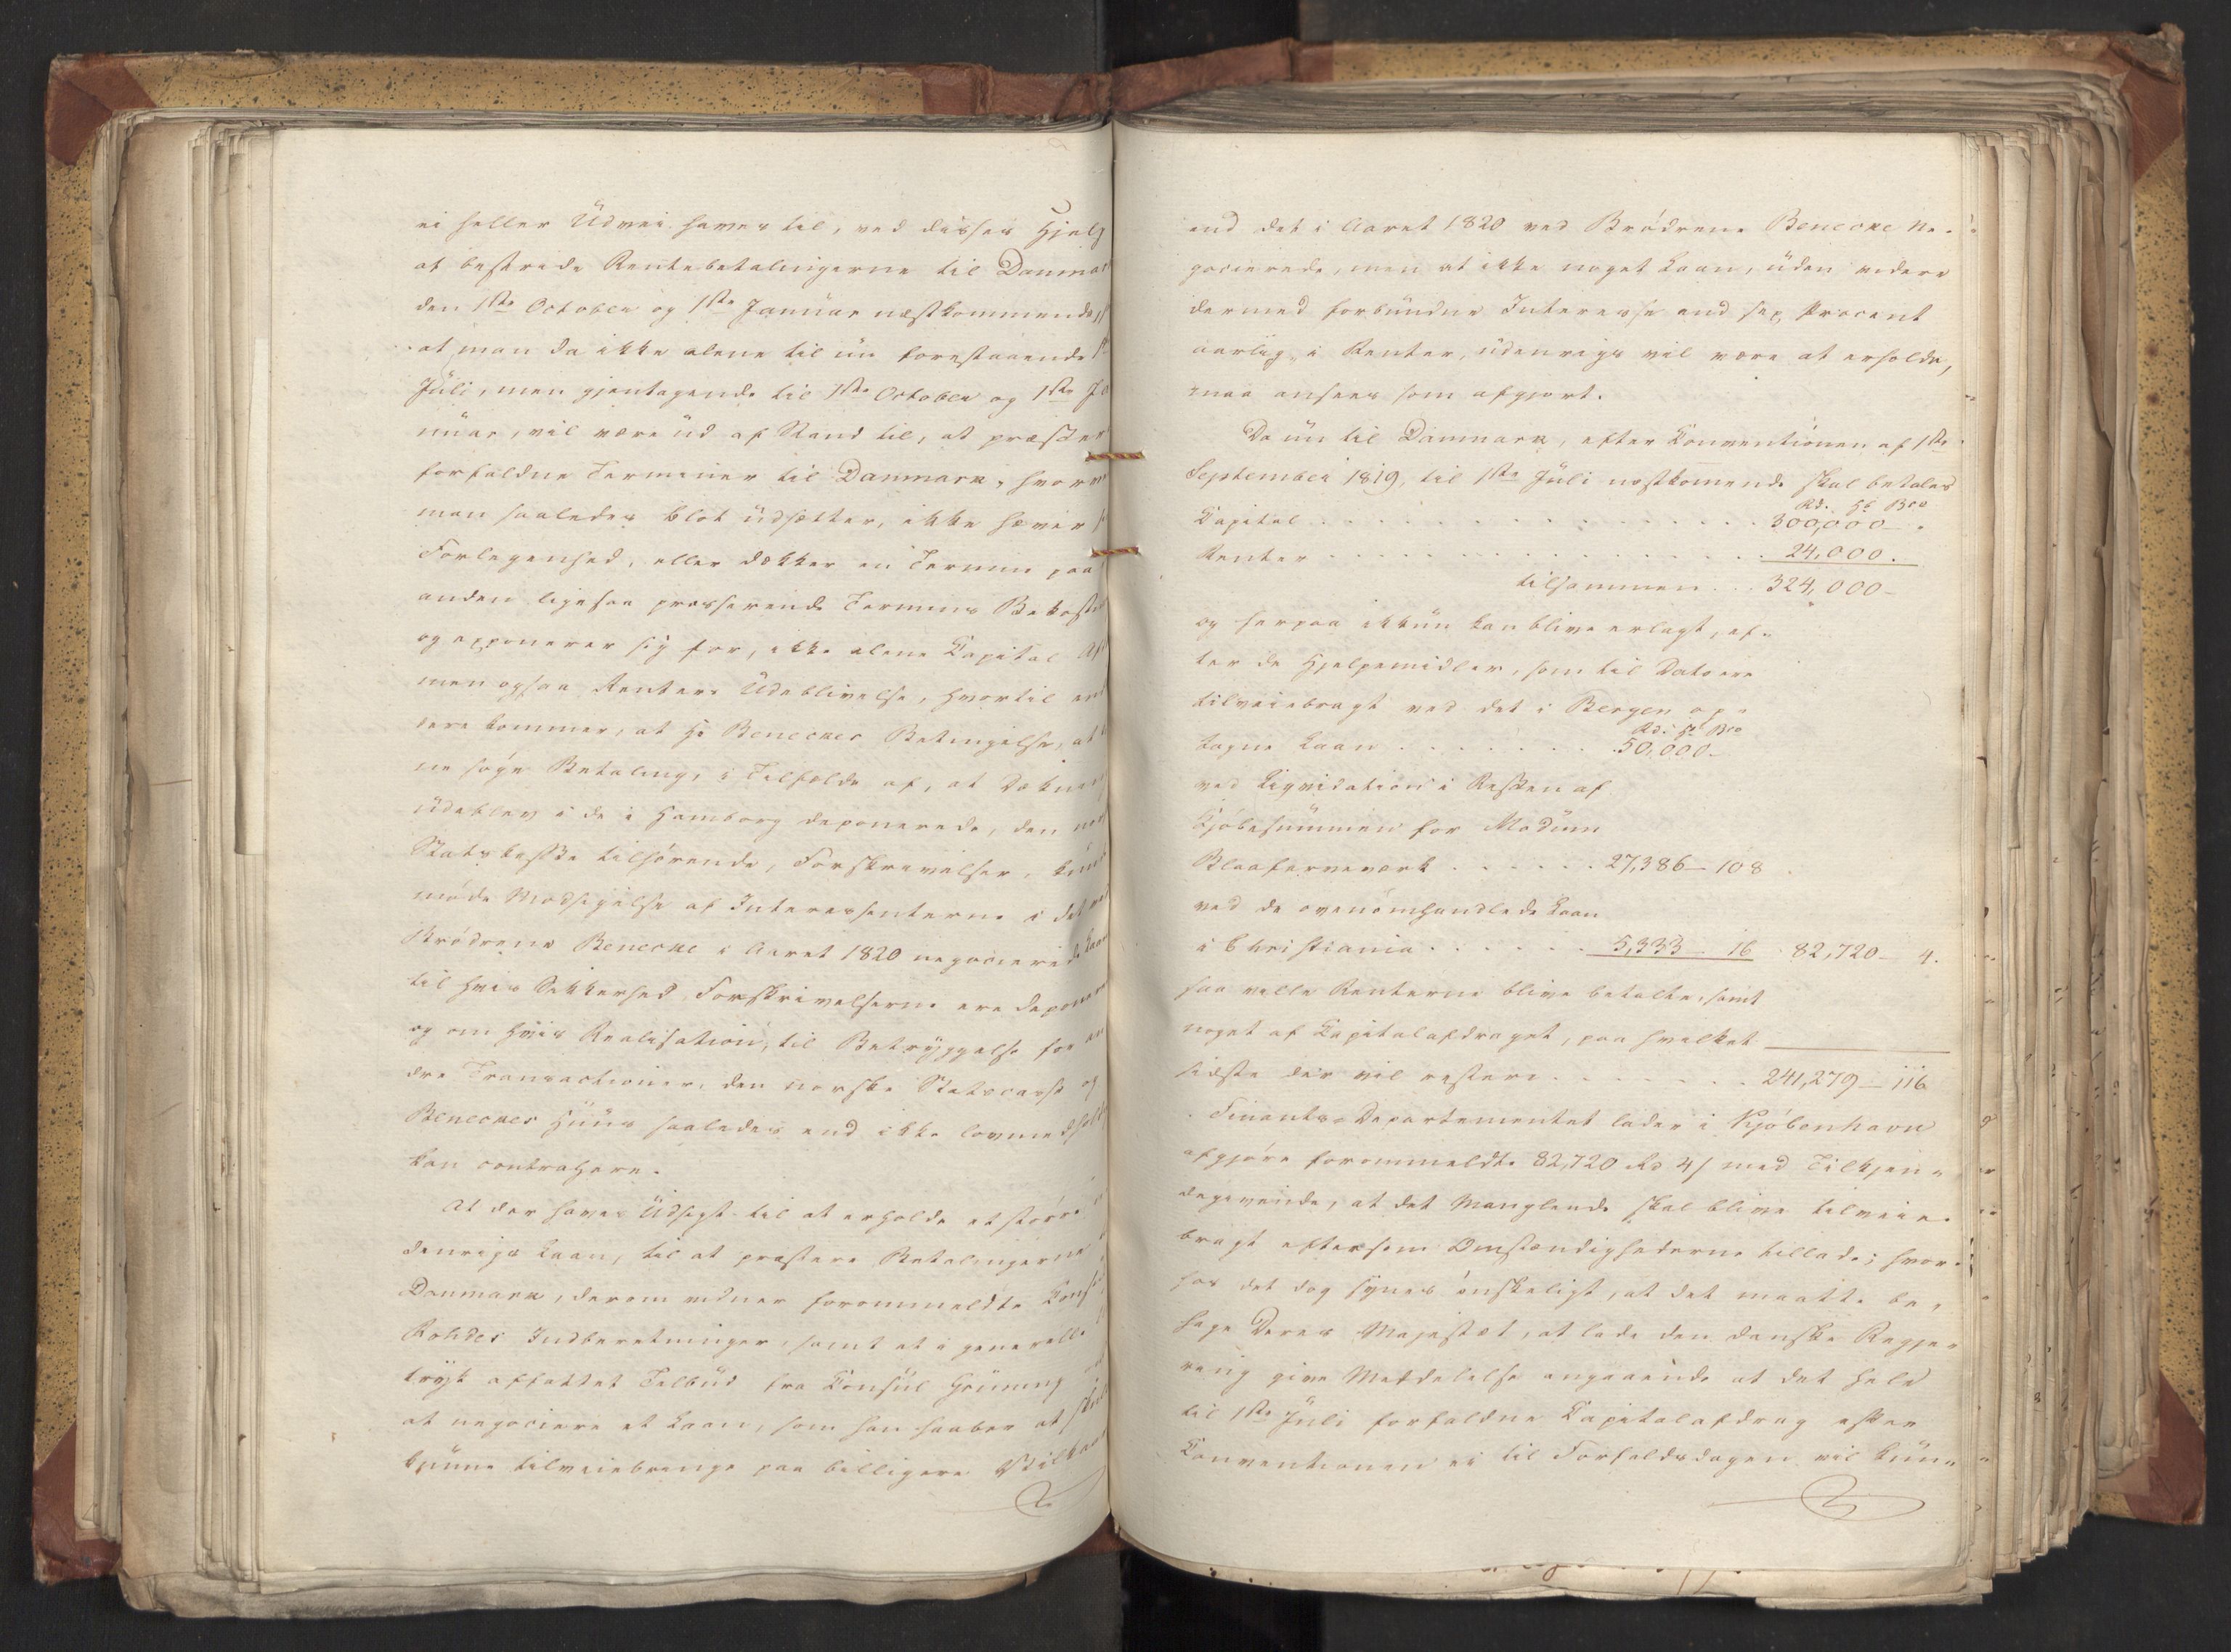 ei heller Udvei haves til, ved disses Hjelp
at bestride Rentebetalingerne til Danmar
den 1ste October og 1ste Januar næstkommende,
at man da ikke alene til nu forestaaende 1
Juli, men gjentagende til 1ste October og 1ste Ja
nuar, vil være ud af Stand til, at præster
forfaldne Terminer til Danmark, hvorve
man saaledes blot udsætter, ikke hæver
Forlegenhed, eller dækker en Termin paa
anden ligesaa presserende Termins Bekost
og exponerer sig for, ikke alene Capital Af
men ogsaa Renters Udeblivelse, hvortil en
dere kommer, at Hr Beneckes Betingelse, at
ne søge Betaling, i Tilfælde af, at Dækn
udeblev i de i Hamborg deponerede, den nor
Statskasse tilhørende, Forskrivelser, kun
møde Modsigelse af Interessenterne i det ved
Brødrene Benecke i Aaret 1820 negocierede Laan
til hvis Sikkerhed Forskrivelserne ere depone
og om hvis Realisation, til Betryggelse for an
dre Transactioner, den norske Statscasse og
Beneckes Huus saaledes end ikke lovmed
kan contrahere.
At der haves Udsigt til at erholde et større
denrigs Laan, til at præstere Betalingerne
Danmark, derom vidner forommeldte Cons
Rohdes Indberetninger, samt et i generelle
tryk affattet Tilbud fra Consul Grüning
at negociere et Laan, som han haaber at
kunne tilveiebringe paa billigere Vilkaar
end det i Aaret 1820 ved Brødrene Benecke Ne-
gocierede, men at ikke noget Laan, uden videre
dermed forbundne Interesse end sex Procent
aarlig i Renter, udenrigs vil være at erholde,
maa ansees som afgjort.
Da nu til Danmark, efter Conventionen af 1ste
September 1819, til 1ste Juli næstkomende skal betales
Rd. Hb Bco
Capital . . . 300,000 - .
Renter . . . 24,000.
tilsammen . . . 324,000 -
og herpaa ikkun kan blive erlagt, ef-
ter de Hjelpemidler, som til Dato ere
tilveiebragt ved det i Bergen op-
Rd. Hb Bco
tagne Laan . . . 50,000 -
ved Liqvidation i Resten af
Kjøbesummen for Modum
Blaafarveværk . . . 27,386 - 108
ved de ovenomhandlede Laan
i Christiania . . . 5,333 - 16 82,720 - 4.
saa ville Renterne blive betalte, samt
noget af Capitalafdraget, paa hvilket
sidste der vil restere . . . 241,279 - 116
Finants-Departementet lader i Kjöbenhavn
afgjøre forommeldte 82,720 Rd 4 s med Tilkjen-
degivende, at det Manglende skal blive tilveie-
bragt eftersom Omstændighederne tillade; hvor-
hos det dog synes ønskeligt, at det maatte be-
hage Deres Majestæt, at lade den danske Regje-
ring give Meddelelse angaaende at det hele
til 1ste Juli forfaldne Capitalafdrag efter
Conventionen ei til Forfaldsdagen vil kun-